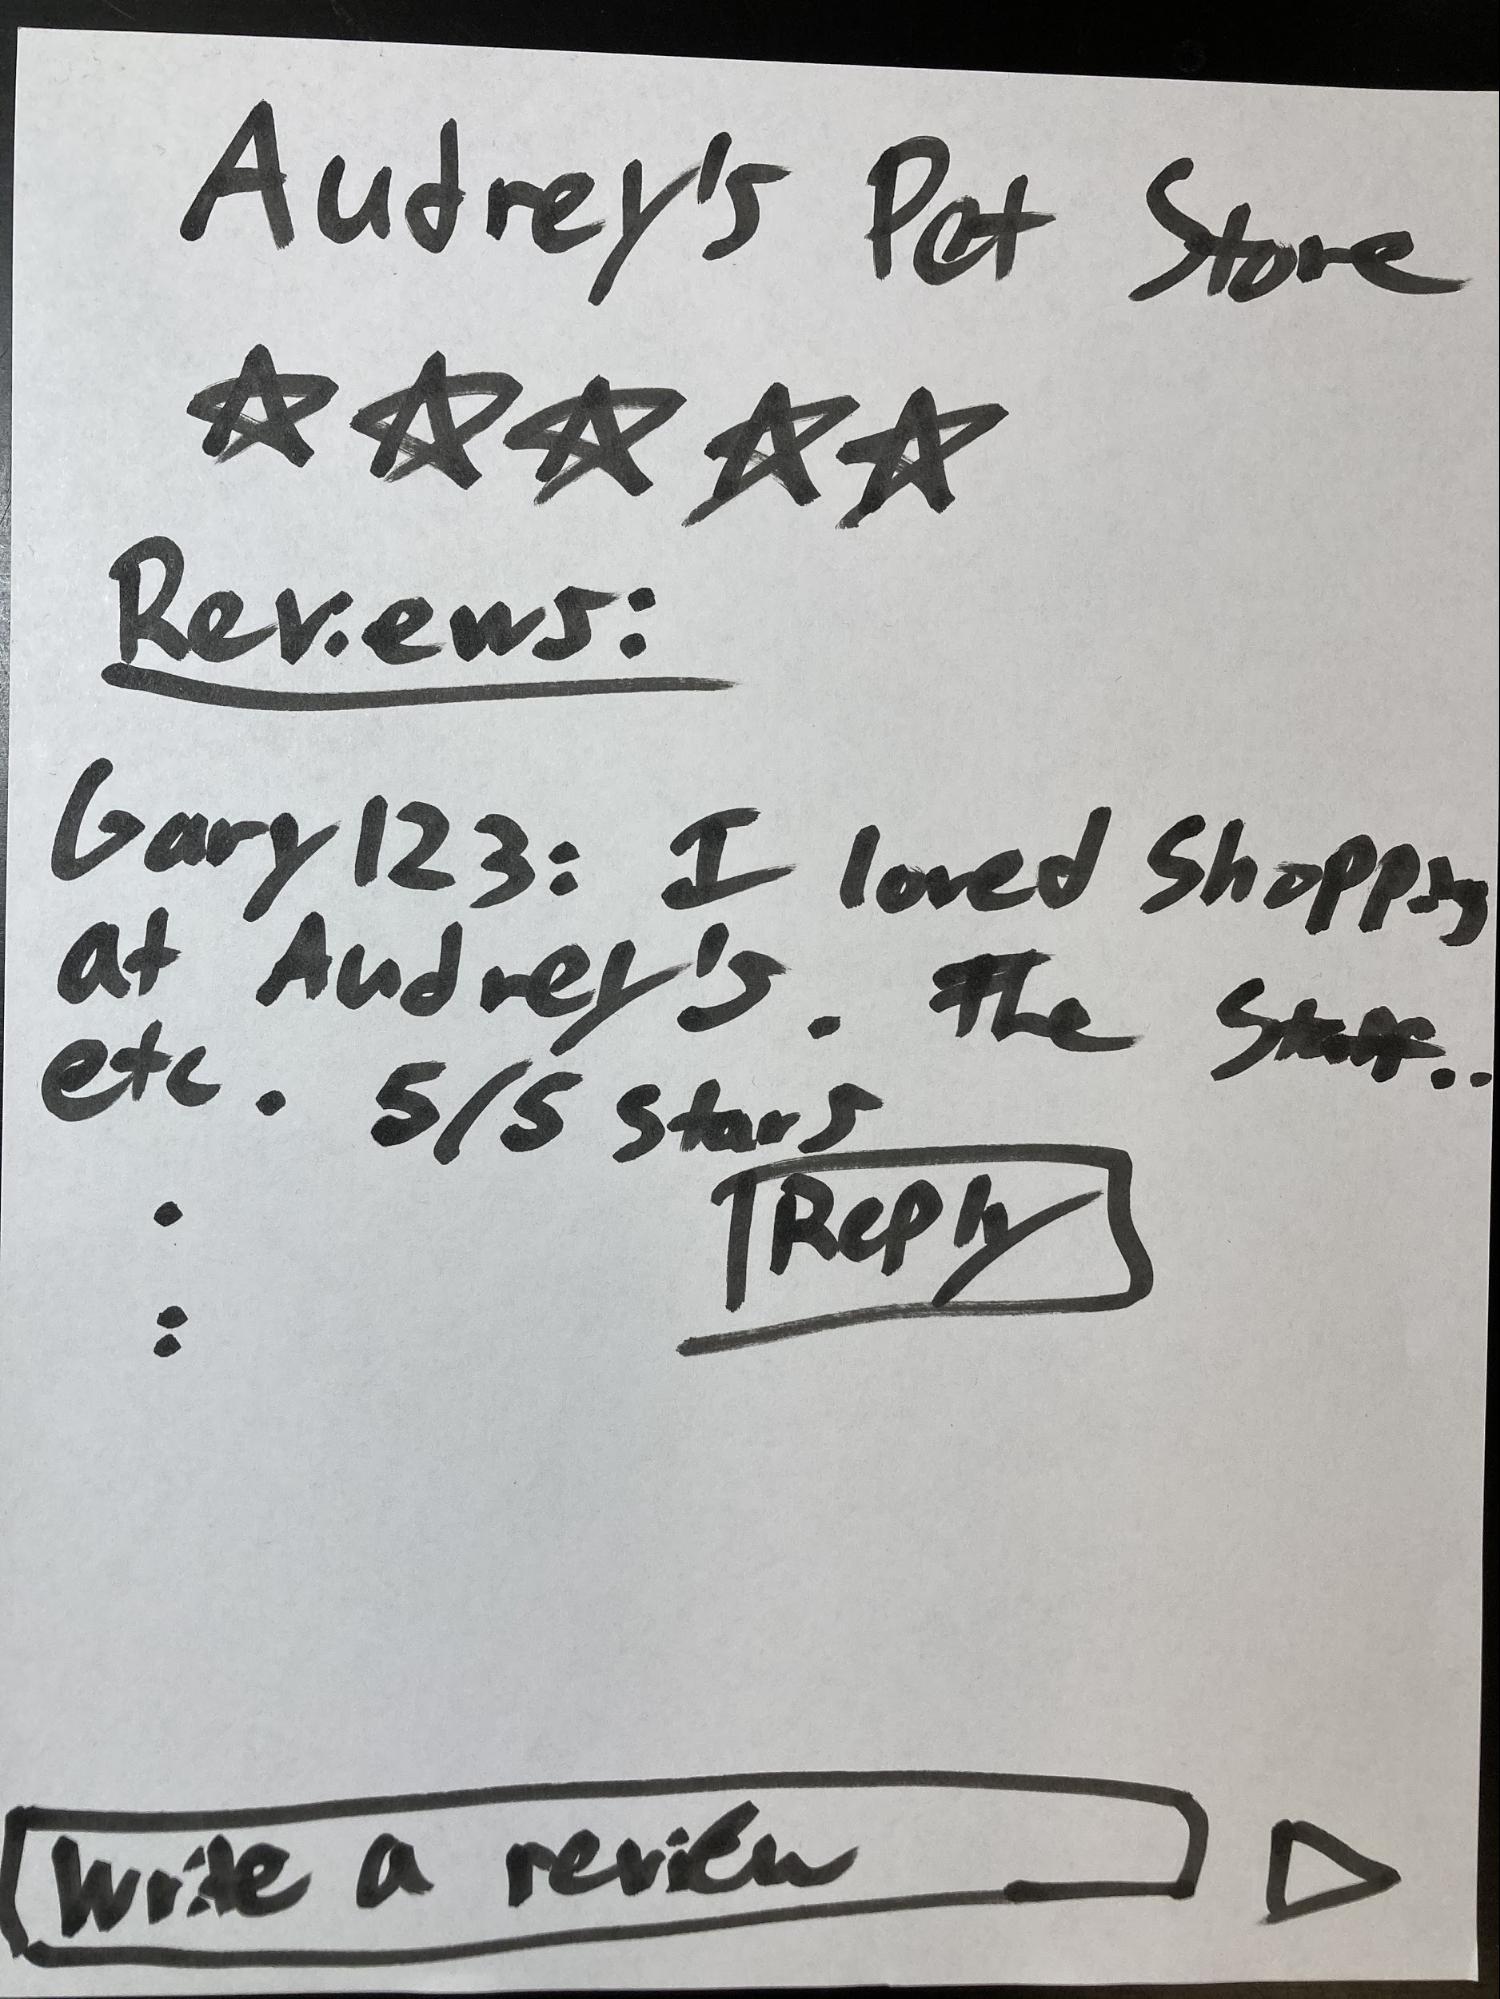 Audrey's Pet Store
Reviews:
Gary123: I loved Shopping
at Audrey's. The Staff..
etc. 5/5 Stars
Reply
Write a review